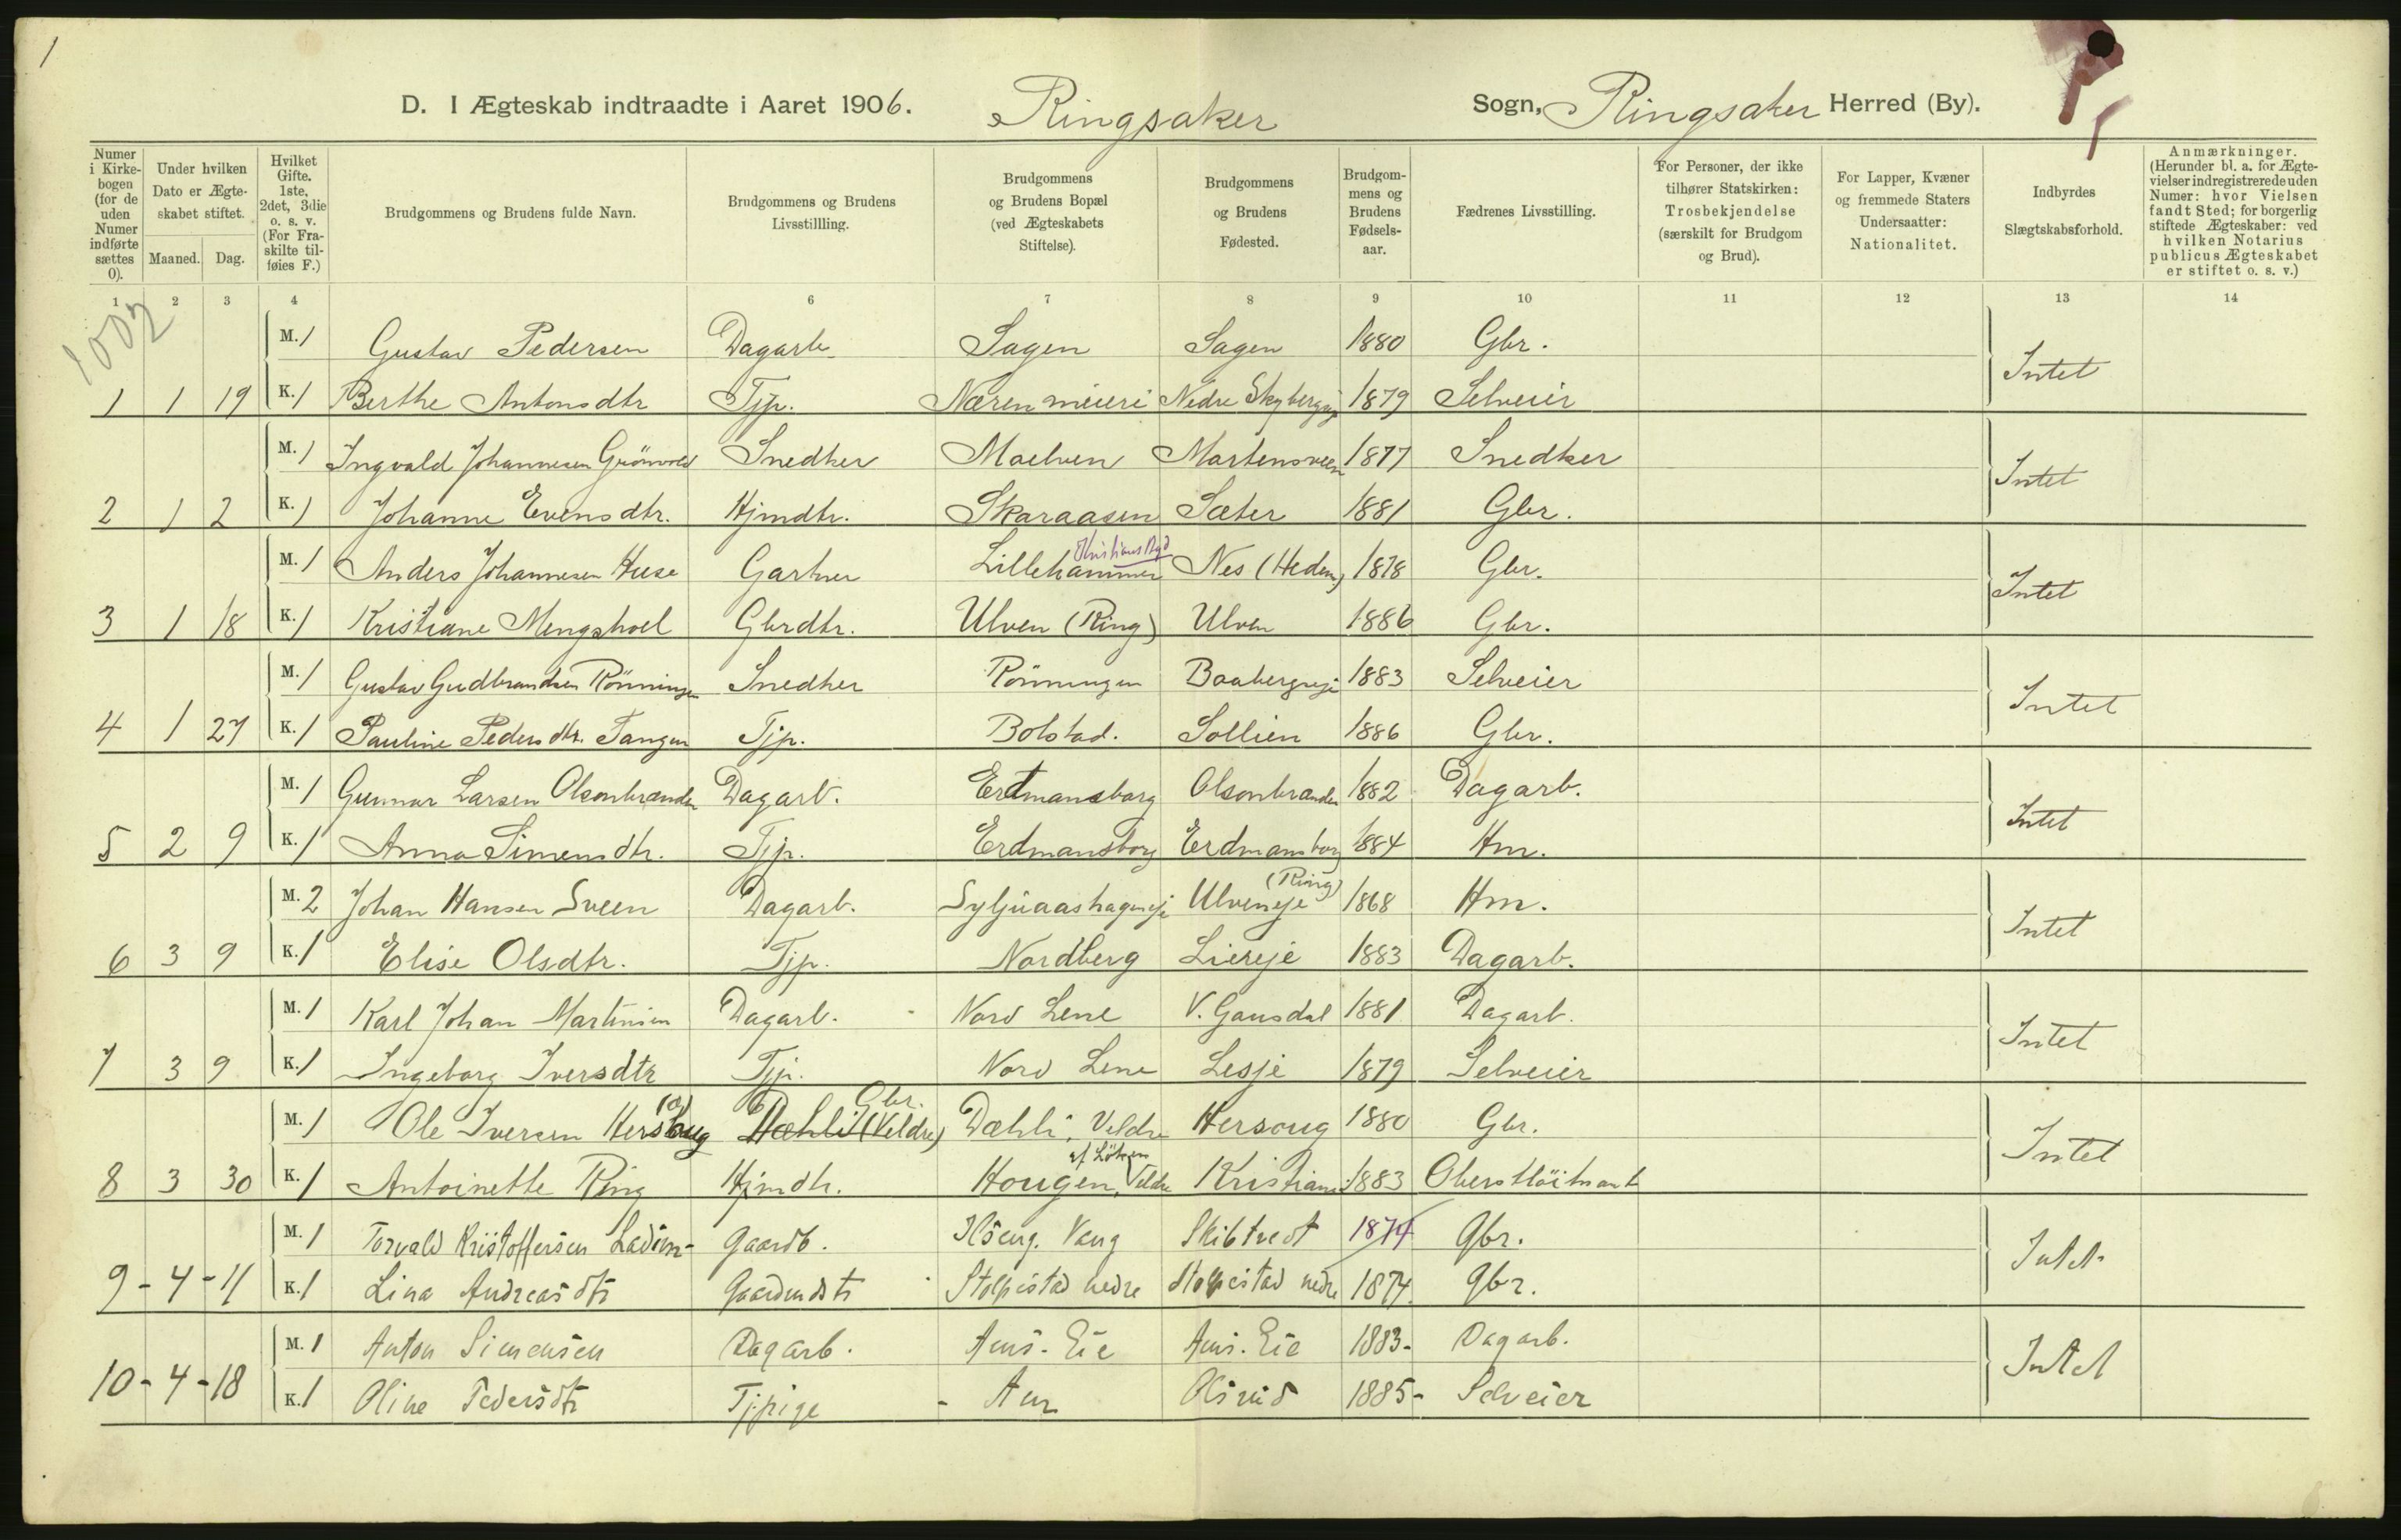 1
D. I Ægteskab indtraadte i Aaret 1906. Ringsaker Sogn, Ringsaker Herred (By).
Numer i Kirkebogen (for de uden Numer indførte sættes 0).
Under hvilken Dato er Ægteskabet stiftet.
Maaned. Dag.
Hvilket Gifte. 1ste, 2det, 3die o. s. v. (For Fraskilte tilføies F.)
Brudgommens og Brudens fulde Navn.
Brudgommens og Brudens Livsstillling.
Brudgommens og Brudens Bopæl (ved Ægteskabets Stiftelse).
Brudgommens og Brudens Fødested.
Brudgommens og Brudens Fødselsaar.
Fædrenes Livsstilling.
For Personer, der ikke tilhører Statskirken: Trosbekjendelse (særskilt for Brudgom og Brud).
For Lapper, Kvæner og fremmede Staters Undersaatter: Nationalitet.
Indbyrdes Slægtskabsforhold.
Anmærkninger. (Herunder bl. a. for Ægtevielser indregistrerede uden Numer: hvor Vielsen fandt Sted; for borgerlig stiftede Ægteskaber: ved hvilken Notarius publicus Ægteskabet er stiftet o. s. v.)
1 2 3 4 6 7 8 9 10 11 12 13 14
1002
M. 1 Gustav Pedersen Dagarb. Sagen Sagen 1880 Gbr.
Intet
1 1 19 K. 1 Berthe Antonsdtr Tjp. Næren meieri Nedre Skybergseje 1879 Selveier
M. 1 Ingvald Johannesen Grönvold Snedker Moelven Martensveen 1877 Snedker
Intet
2 1 2 K. 1 Johanne Evensdtr. Hjmdtr. Skaraasen Sæter 1881 Gbr.
Kristians Amt
M. 1 Anders Johannesen Huse Gartner Lillehammer Nes (Hedem) 1878 Gbr.
Intet
3 1 18 K. 1 Kristiane Mengshoel Gbrdtr. Ulven (Ring) Ulven 1886 Gbr.
M. 1 Gustav Gudbrandsen Rönningen Snedker Rönningen Baabergseje 1883 Selveier
Intet
4 1 27 K. 1 Pauline Pedersdtr. Tangen Tjp. Bolstad. Sollien 1886 Gbr.
M. 1 Gunnar Larsen Olsonbrænden Dagarb. Erdmansborg Olsonbrænden 1882 Dagarb.
Intet
5 2 9 K. 1 Anna Simensdtr. Tjp. Erdmansborg Erdmansborg 1884 Hm.
(Ring)
M. 2 Johan Hansen Sveen Dagarb. Syljuaashageneje Ulveneje 1868 Hm.
Intet
6 3 9 K. 1 Elise Olsdtr. Tjp. Nordberg Liereje 1883 Dagarb.
M. 1 Karl Johan Martinsen Dagarb. Nord Lene V. Gausdal 1881 Dagarb.
Intet
7 3 9 K. 1 Ingeborg Iversdtr Tjp. Nord Lene Lesje 1879 Selveier
(o) Gbr.
M. 1 Ole Iversen Hersoug Dæhli (Veldre) Dæhli, Veldre Hersoug 1880 Gbr.
Intet
af Löken
8 3 30 K. 1 Antoinette Ring Hjmdtr. Hougen, Veldre Kristiania 1883 Oberstlöitnant
M. 1 Torvald Kristoffersen Gaardb. Ilseng. Vang Skibtvedt 1874 Gbr.
Intet
9 - 4 - 11 K. 1 Lina Andreasdtr Gaardmdtr Stolpestad nedre Stolpestad nedre 1874. Gbr.
M. 1 Anton Simensen Dagarb. Aurs. Eie Aurs. Eie 1883- Dagarb.
Intet
10 - 4 - 18 K. 1 Oline Pedersdtr Tjpige - Aur Olsrud 1885- Selveier